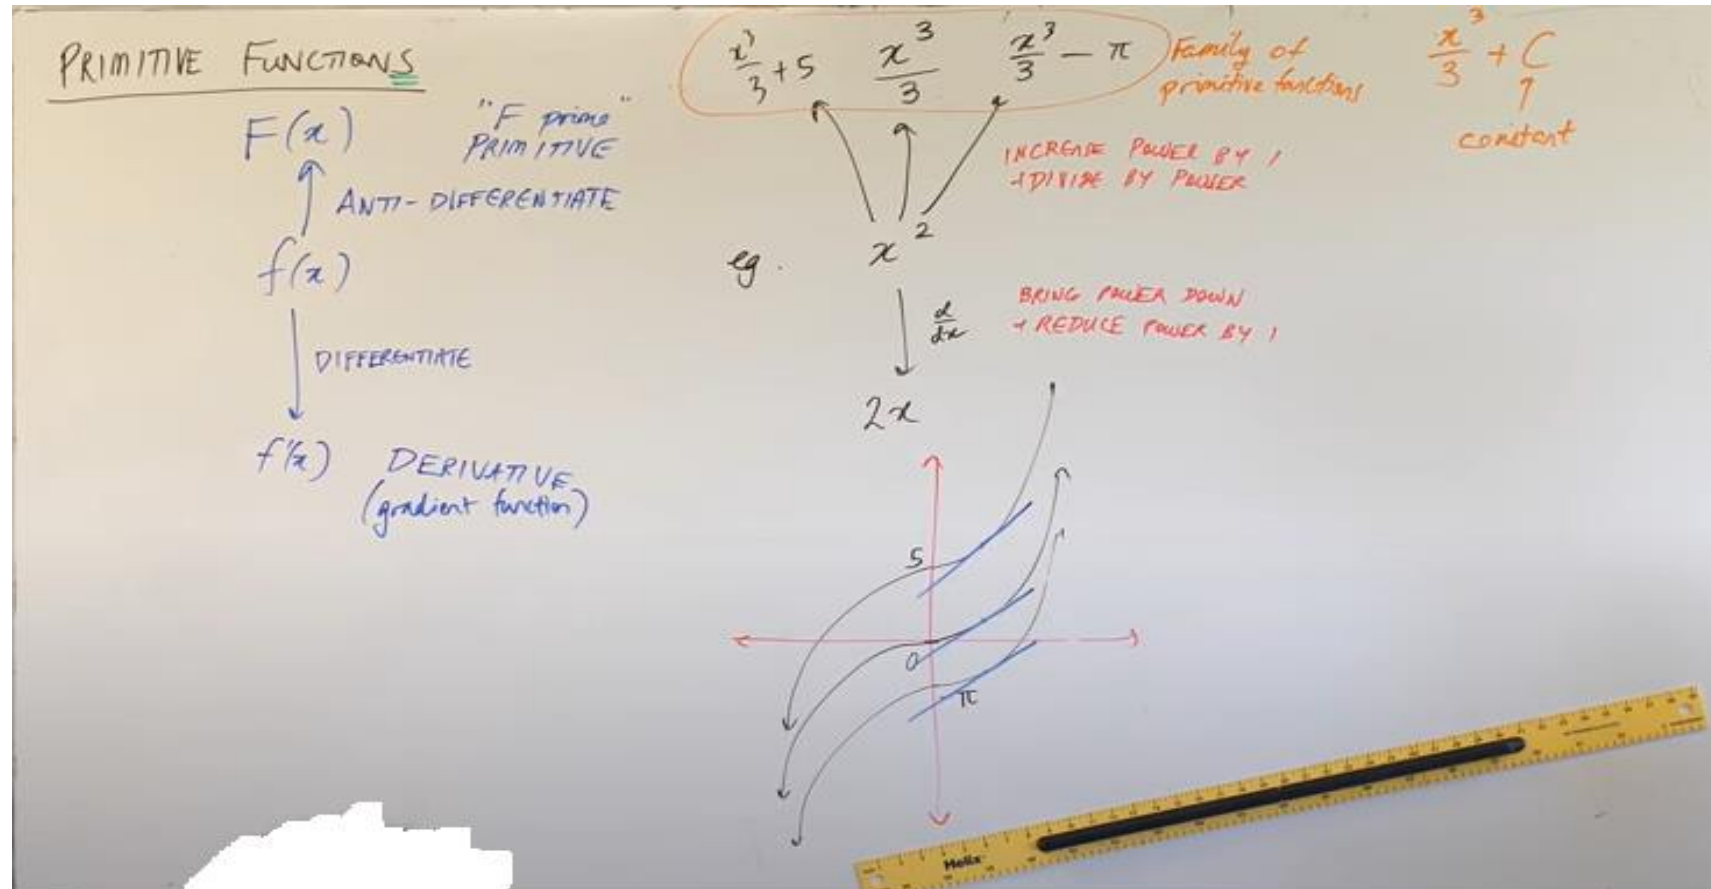 PRIMITIVE FUNCTIONS
F(x)
"F prime"
PRIMITIVE
ANTI-DIFFERENTIATE
f(x)
DIFFERENTIATE
f'(x)
DERIVATIVE
(gradient function)
x³/3 + 5
x³/3
x³/3 - π
Family of
primitive functions
x³/3 + C
constant
INCREASE POWER BY 1
+ DIVIDE BY POWER
eg. x²
d/dx
BRING POWER DOWN
+ REDUCE POWER BY 1
2x
5
0
π
Helix